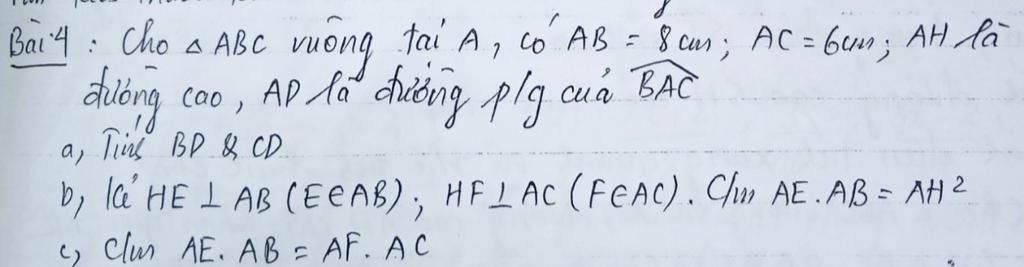 Bài 4 : Cho △ ABC vuông tại A, có AB = 8 cm; AC = 6cm; AH là
đường cao, AD là đường p/g của BAC
a, Tính BD & CD
b, Kẻ HE ⊥ AB (E∈AB); HF ⊥ AC (F∈AC). C/m AE.AB = AH²
c, C/m AE. AB = AF. AC